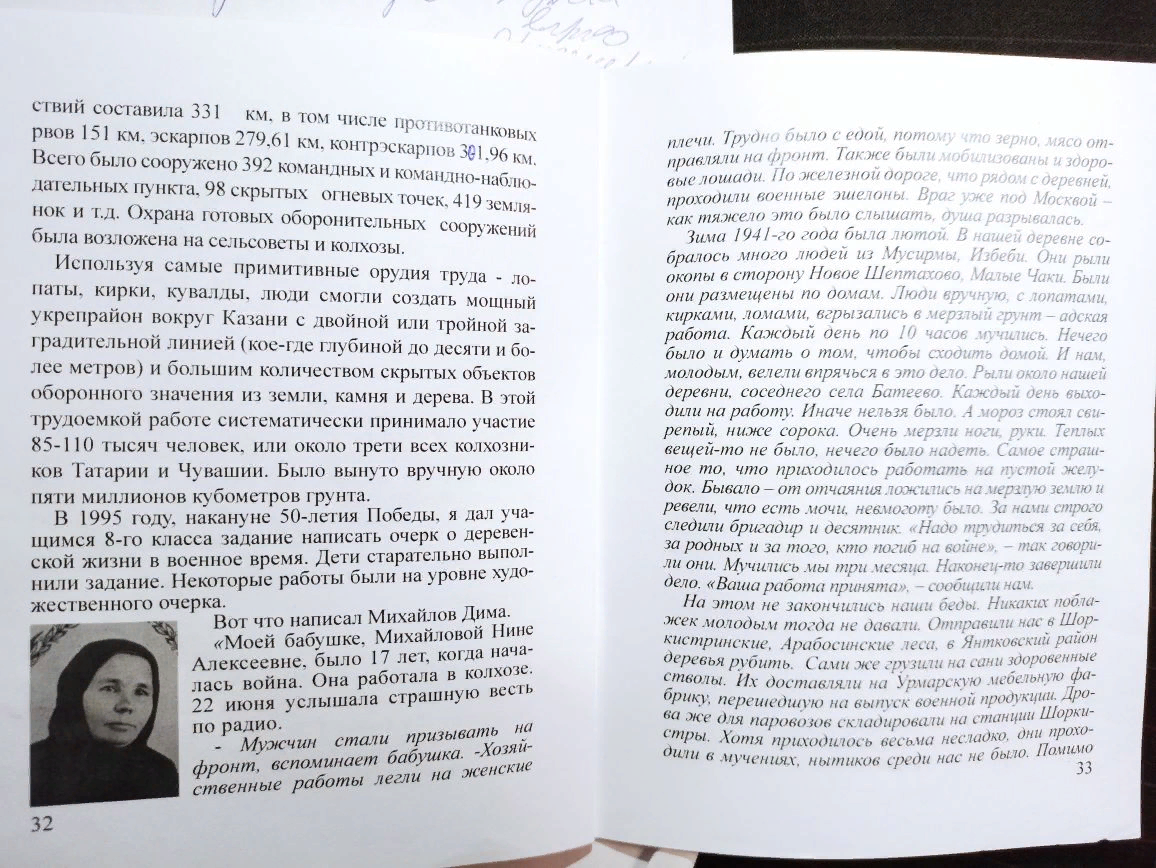 ствий составила 331 км, в том числе противотанковых
рвов 151 км, эскарпов 279,61 км, контрэскарпов 301,96 км.
Всего было сооружено 392 командных и командно-наблю-
дательных пункта, 98 скрытых огневых точек, 419 земля-
нок и т.д. Охрана готовых оборонительных сооружений
была возложена на сельсоветы и колхозы.
Используя самые примитивные орудия труда - ло-
паты, кирки, кувалды, люди смогли создать мощный
укрепрайон вокруг Казани с двойной или тройной за-
градительной линией (кое-где глубиной до десяти и бо-
лее метров) и большим количеством скрытых объектов
оборонного значения из земли, камня и дерева. В этой
трудоемкой работе систематически принимало участие
85-110 тысяч человек, или около трети всех колхозни-
ков Татарии и Чувашии. Было вынуто вручную около
пяти миллионов кубометров грунта.
В 1995 году, накануне 50-летия Победы, я дал уча-
щимся 8-го класса задание написать очерк о деревен-
ской жизни в военное время. Дети старательно выпол-
нили задание. Некоторые работы были на уровне худо-
жественного очерка.
Вот что написал Михайлов Дима.
«Моей бабушке, Михайловой Нине
Алексеевне, было 17 лет, когда нача-
лась война. Она работала в колхозе.
22 июня услышала страшную весть
по радио.
- Мужчин стали призывать на
фронт, вспоминает бабушка. -Хозяй-
ственные работы легли на женские
32
плечи. Трудно было с едой, потому что зерно, мясо от-
правляли на фронт. Также были мобилизованы и здоро-
вые лошади. По железной дороге, что рядом с деревней,
проходили военные эшелоны. Враг уже под Москвой –
как тяжело это было слышать, душа разрывалась.
Зима 1941-го года была лютой. В нашей деревне со-
бралось много людей из Мусирмы, Избеби. Они рыли
окопы в сторону Новое Шептахово, Малые Чаки. Были
они размещены по домам. Люди вручную, с лопатами,
кирками, ломами, вгрызались в мерзлый грунт – адская
работа. Каждый день по 10 часов мучились. Нечего
было и думать о том, чтобы сходить домой. И нам,
молодым, велели впрячься в это дело. Рыли около нашей
деревни, соседнего села Батеево. Каждый день выхо-
дили на работу. Иначе нельзя было. А мороз стоял сви-
репый, ниже сорока. Очень мерзли ноги, руки. Теплых
вещей-то не было, нечего было надеть. Самое страш-
ное то, что приходилось работать на пустой желу-
док. Бывало – от отчаяния ложились на мерзлую землю и
ревели, что есть мочи, невмоготу было. За нами строго
следили бригадир и десятник. «Надо трудиться за себя,
за родных и за того, кто погиб на войне», – так говори-
ли они. Мучились мы три месяца. Наконец-то завершили
дело. «Ваша работа принята», – сообщили нам.
На этом не закончились наши беды. Никаких побла-
жек молодым тогда не давали. Отправили нас в Шор-
кистринские, Арабосинские леса, в Янтковский район
деревья рубить. Сами же грузили на сани здоровенные
стволы. Их доставляли на Урмарскую мебельную фа-
брику, перешедшую на выпуск военной продукции. Дро-
ва же для паровозов складировали на станции Шорки-
стры. Хотя приходилось весьма несладко, дни прохо-
дили в мучениях, нытиков среди нас не было. Помимо
33